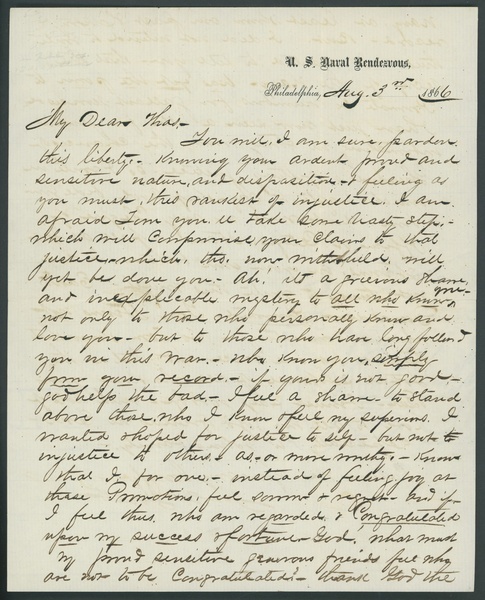 U. S. Naval Rendezvous,
Philadelphia, Aug. 3rd 1866
My Dear Thos.-
You will, I am sure, pardon
this liberty,- knowing your ardent proud and
sensitive nature, and disposition,- & feeling as
you must, this rankest of injustice. I am
afraid Tom you'll take some hasty step,-
which will compromise your claims to that
justice,- which, tho. now withheld, will
yet be done you.- Ah! its a grievous shame,
and inexplicable mystery to all who know you-
not only to those who personally know and
love you - but to those who have long follow'd
you in this war,- who know you simply
from your record.- If yours is not good,-
god help the bad.- I feel a shame to stand
above those, who I know & feel my superiors. I
wanted & hoped for justice to self - but not to
injustice to others, as, or more worthy.- Know
that I for one,- instead of feeling joy at
these Promotions, feel sorrow & regret- and if
I feel thus, who am regarded, & Congratulated
upon my success & fortune - God, what must
my proud sensitive generous friends feel who
are not to be Congratulated?- thank God the